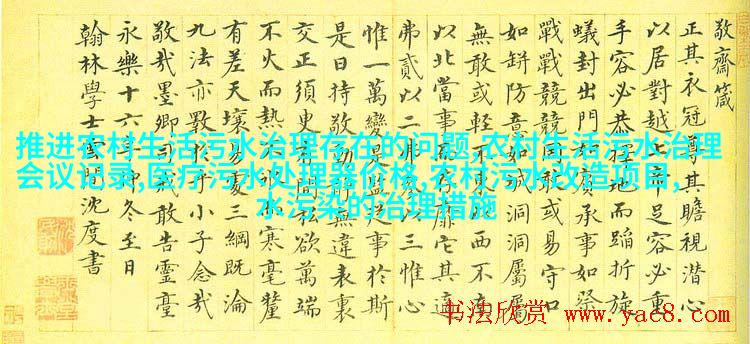 敬齋箴
正其衣冠尊其瞻視潛心
以居對越足容必重
手容必恭擇地而蹈折旋
蟻封出門如承事如祭
戰戰兢兢或易守口
如缾防意如洞洞屬屬
無敢或輕不東西不南
以北當事而靡它其適
弗貳以二弗以三惟心
惟一萬變是監事於斯
是曰持敬動無違表裏
交正須臾有欲萬端
不火而熱不寒毫釐
有差天壤易三綱既淪
九法亦斁於乎小子念哉
敬哉墨卿司戒敢告靈臺
永樂十六年冬至日
翰林學士雲間沈度書
推进农村生活污水治理存在的问题,农村生活污水治理
会议记录,医疗污水处理器价格,农村污水改造项目,
水污染的治理措施
书法欣赏
www.yac8.com